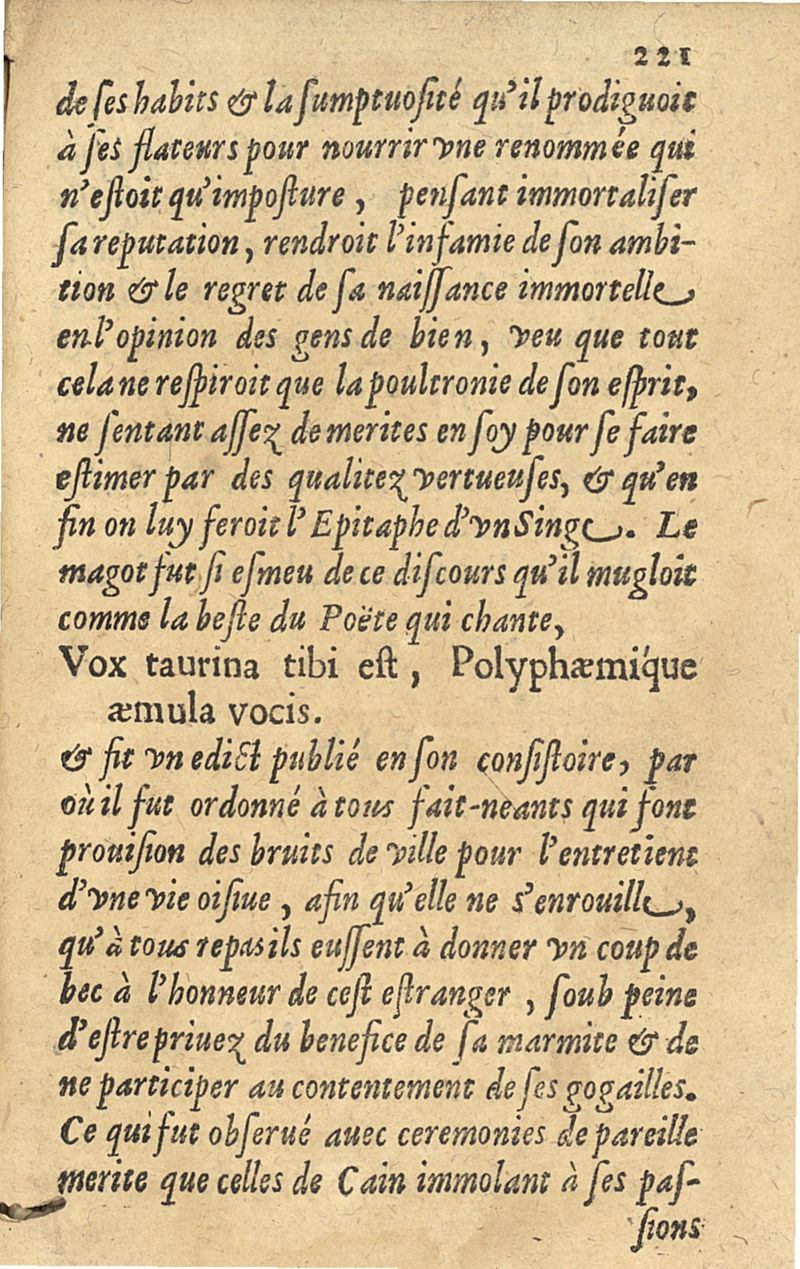 221
de ſes habits & la ſumptuoſité qu'il prodiguoit
à ſes flateurs pour nourrir vne renommée qui
n'eſtoit qu'impoſture, penſant immortaliſer
ſa reputation, rendroit l'infamie de ſon ambi-
tion & le regret de ſa naiſſance immortelle
en l'opinion des gens de bien, veu que tout
cela ne reſpiroit que la poultronie de ſon eſprit,
ne ſentant aſſez de merites en ſoy pour ſe faire
eſtimer par des qualitez vertueuſes, & qu'en
fin on luy feroit l'Epitaphe d'vn Singe. Le
magot fut ſi eſmeu de ce diſcours qu'il mugloit
comme la beſte du Poëte qui chante,
Vox taurina tibi eſt, Polyphæmi'que
æmula vocis.
& fit vn edict publié en ſon conſiſtoire, par
où il fut ordonné à tous fait-neants qui font
prouiſion des bruits de ville pour l'entretient
d'vne vie oiſiue, afin qu'elle ne s'enrouille,
qu'à tous repas ils euſſent à donner vn coup de
bec à l'honneur de ceſt eſtranger, ſoub peine
d'eſtre priuez du benefice de ſa marmite & de
ne participer au contentement de ſes gogailles.
Ce qui fut obſerué auec ceremonies de pareille
merite que celles de Cain immolant à ſes paſ-
ſions